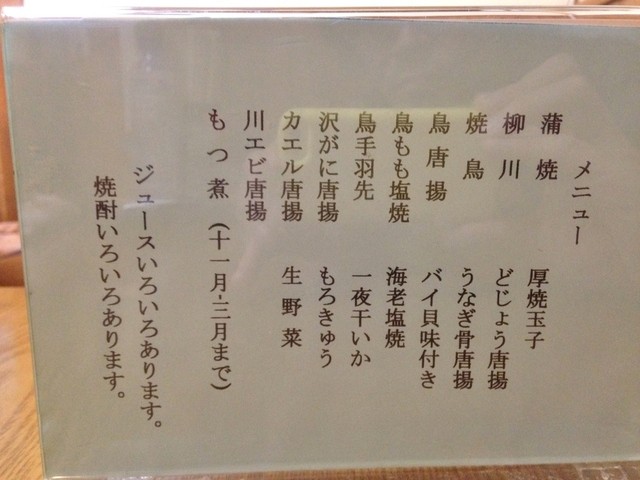 メニュー
蒲焼
柳川
焼鳥
鳥唐揚
鳥もも塩焼
鳥手羽先
沢がに唐揚
カエル唐揚
川エビ唐揚
もつ煮（十一月-三月まで）
厚焼玉子
どじょう唐揚
うなぎ骨唐揚
バイ貝味付き
海老塩焼
一夜干いか
もろきゅう
生野菜
ジュースいろいろあります。
焼酎いろいろあります。